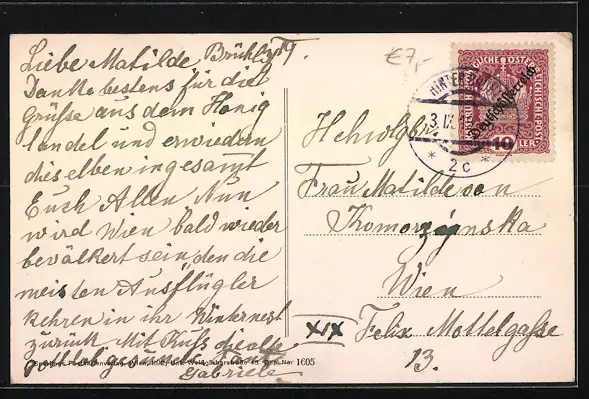 Liebe Matilde Brühl 19.
Danke bestens für die
Grüße aus dem Honig
landel und erwiedern
dieselben ingesamt
Euch Allen. Nun
wird Wien bald wieder
bevälkert sein, den die
meisten Ausflügler
kehren in ihr Winternest
zurück. Mit Kuß die alte
gottlob gesunde
Gabriele
1605
€7,-
3. IX.
* 2c *
Deutschösterreich
10
Hochwolgb.
Frau Matilde von
Komorzynska
Wien
XIX Felix Mottelgaße
13.